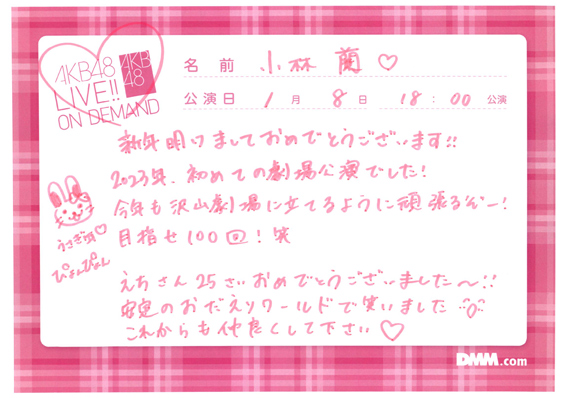 AKB48
LIVE!!
ON DEMAND
AKB
48
名前 小林 蘭♡
公演日 1月 8日 18:00 公演
新年明けましておめでとうございます!!
2023年、初めての劇場公演でした!
今年も沢山劇場に立てるように頑張るぞー!
目指せ100回!笑
うさぎ年♡
ぴょんぴょん
えちさん25さいおめでとうございました〜!!
安定のおだえりワールドで笑いました
これからも仲良くして下さい♡
DMM.com